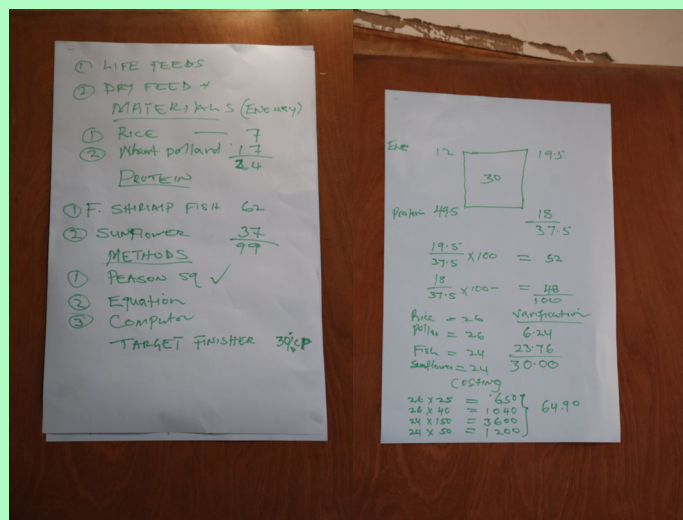 ① LIFE FEEDS
② DRY FEED &
MATERIALS (ENERGY)
① RICE — 7
② Wheat pollard 17
24
PROTEIN
① F. SHRIMP FISH 62
② SUNFLOWER 37
99
METHODS
① PEASON SQ ✓
② Equation
③ Computor
TARGET FINISHER 30% CP
Ene 12 19.5
30
Protein 49.5 18
37.5
19.5
37.5 × 100 = 52
18
37.5 × 100 = 48
100
Rice = 26 Varification
pollard = 26 6.24
Fish = 24 23.76
Sunflower = 24 30.00
COSTING
26 × 25 = 650
26 × 40 = 1040
24 × 150 = 3600
24 × 50 = 1200
64.90